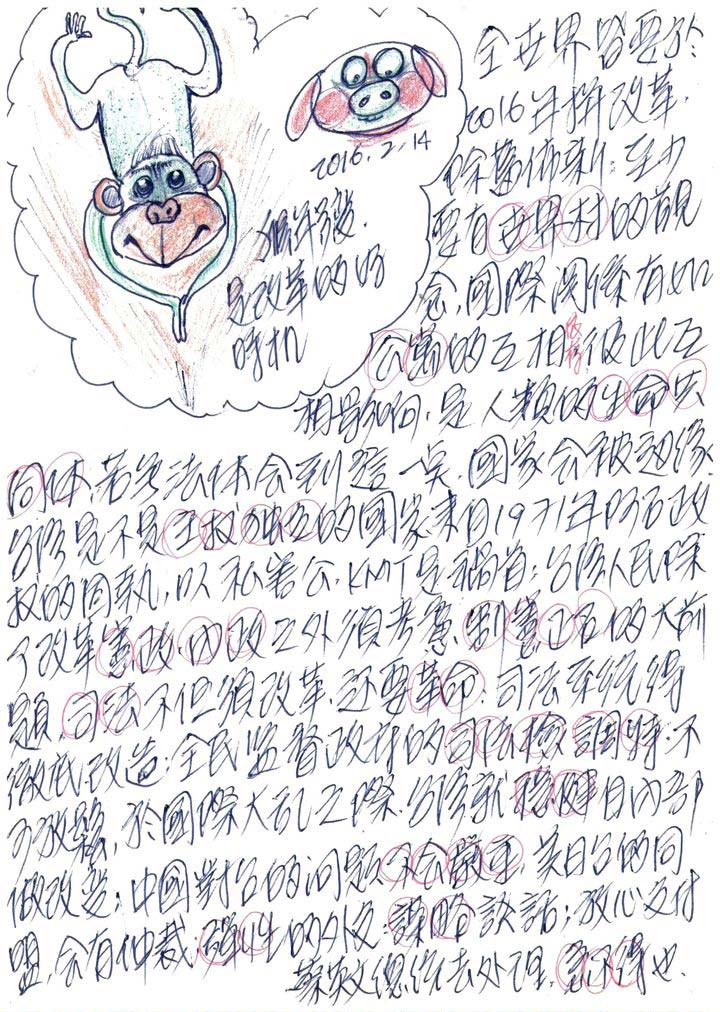 2016.2.14
猴年到,
是改革的好
時机
全世界皆要於
2016年拼改革,
除舊佈新;至少
要有世界村的觀
念,國際関係有如
公寓的互相依存彼此互
相影响,是人類的生命共
同体,若無法体会到這一點,國家会被边缘
台湾是不是主权独立的國家来自1971年時當政
权的固執,以私害公,KMT是禍首;台湾人民除
了改革憲政,内政之外須考慮制憲正名的大前
題,司法不但須改革,还要革命;司法系统得
徹底改造;全民监督政府的司法檢調特;不
可放鬆,於國際大乱之際,台湾就穩健自内部
做改變;中國對台的问题不会嚴重,美日台的同
盟,会有仲裁;彈性的外交;謀略談話;放心交付
蔡英文總統去处理,急不得也.